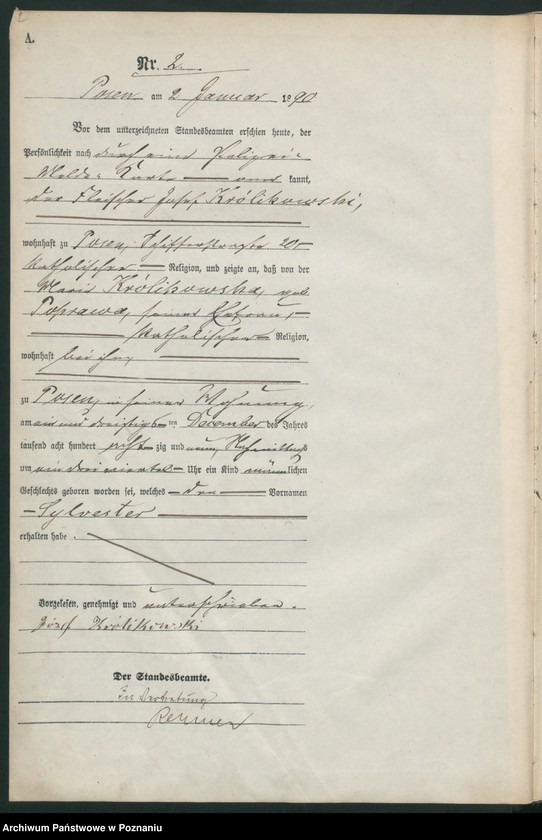 2
A.
Nr. 2.
Posen am 2 Januar 1890
Vor dem unterzeichneten Standesbeamten erschien heute, der
Persönlichkeit nach durch eine Polizei-
Melde-Karte kannt,
der Fleischer Josef Królikowski,
wohnhaft zu Posen, Schifferstraße 20
katholischer Religion, und zeigte an, daß von der
Maria Królikowska, geb.
Poprawa, seiner Ehefrau,
katholischer Religion,
wohnhaft bei ihm,
zu Posen, in seiner Wohnung,
am ein und dreißigsten Dezember des Jahres
tausend acht hundert achtzig und neun, Nachmittags
um ein drei viertel Uhr ein Kind männlichen
Geschlechts geboren worden sei, welches den Vornamen
Sylvester
erhalten habe.
Vorgelesen, genehmigt und unterschrieben.
Józef Królikowski
Der Standesbeamte.
In Vertretung
Archiwum Państwowe w Poznaniu